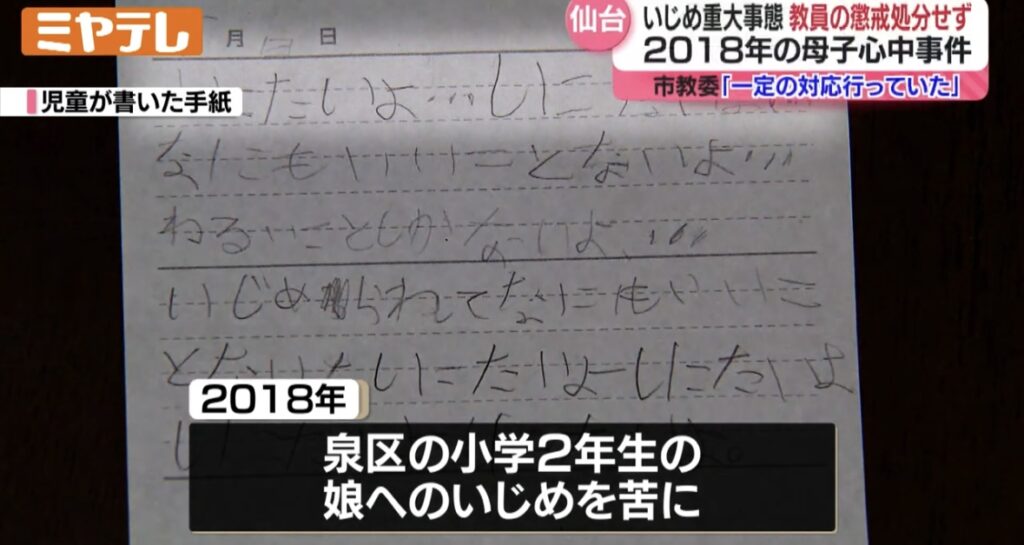 ミヤテレ
仙台
いじめ重大事態 教員の懲戒処分せず
2018年の母子心中事件
市教委「一定の対応行っていた」
児童が書いた手紙
月 日
たいよ…しにた
なにもいいことないよ…
ねることしかないよ…
いじめられてなにもいいこ
とないよしにたいよーしにたいよ
2018年
泉区の小学2年生の
娘へのいじめを苦に